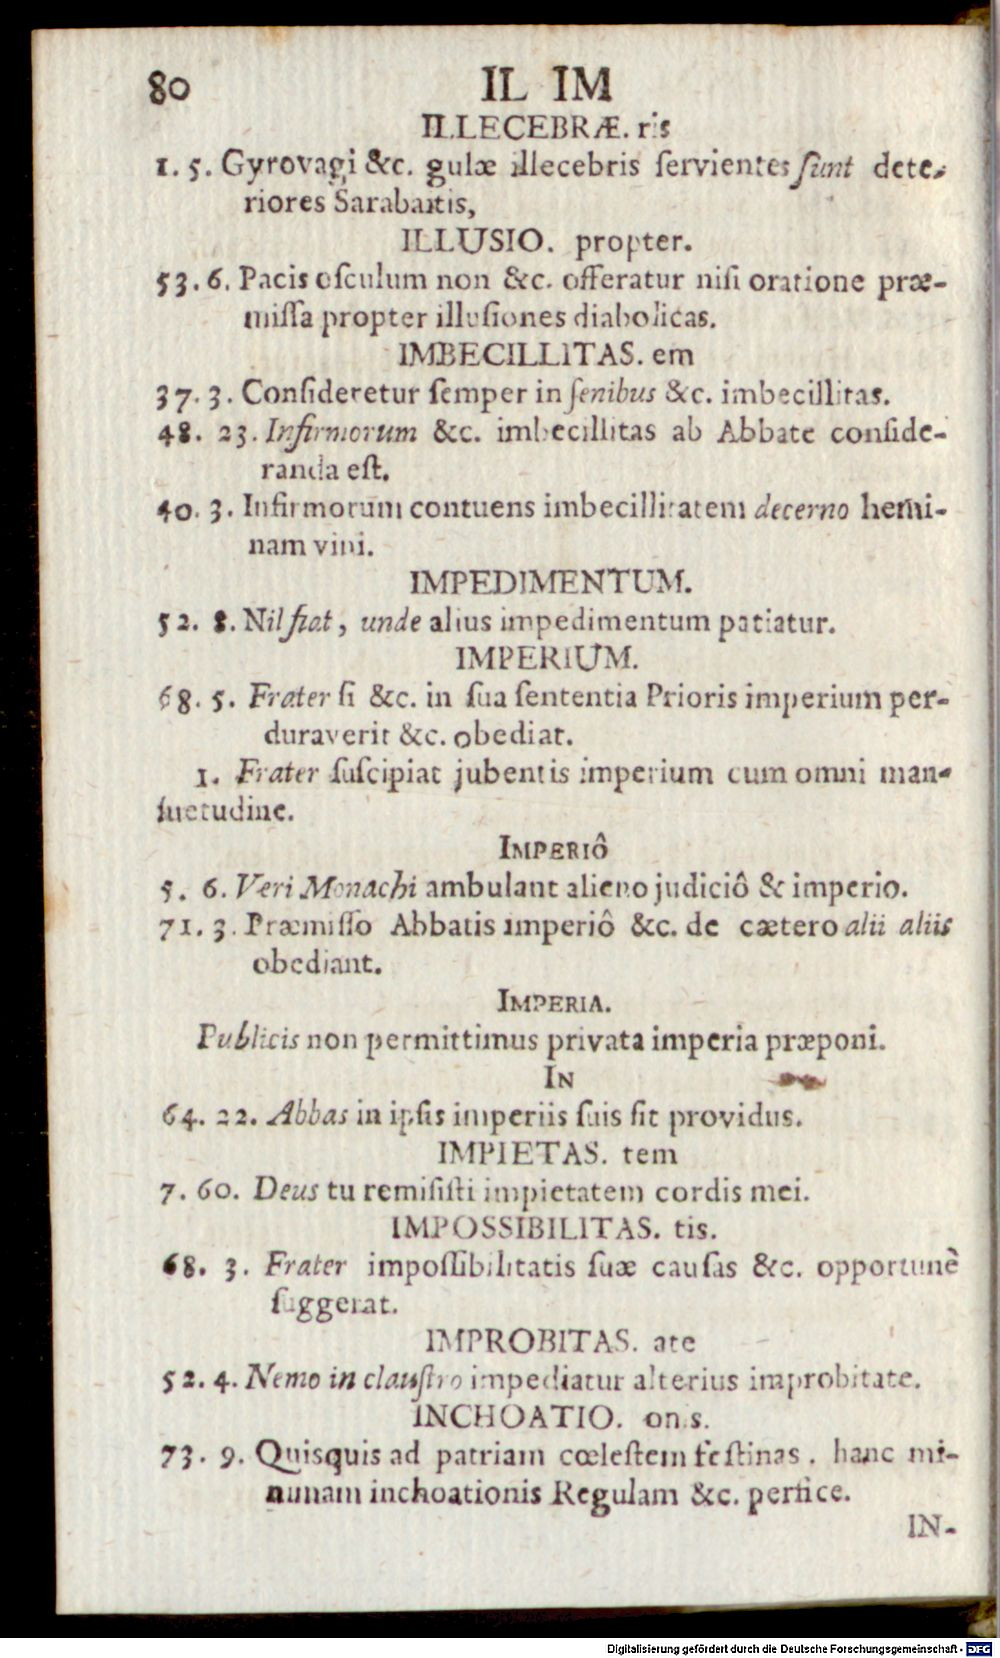 80 IL IM
ILLECEBRÆ. ris
1. 5. Gyrovagi &c. gulæ illecebris ſervientes ſunt dete-
riores Sarabaitis,
ILLUSIO. propter.
53. 6. Pacis oſculum non &c. offeratur niſi oratione præ-
miſſa propter illuſiones diabolicas.
IMBECILLITAS. em
37. 3. Conſideretur ſemper in ſenibus &c. imbecillitas.
48. 23. Infirmorum &c. imbecillitas ab Abbate conſide-
randa eſt.
40. 3. Infirmorum contuens imbecillitatem decerno hemi-
nam vini.
IMPEDIMENTUM.
52. 8. Nil fiat, unde alius impedimentum patiatur.
IMPERIUM.
68. 5. Frater ſi &c. in ſua ſententia Prioris imperium per-
duraverit &c. obediat.
1. Frater ſuſcipiat jubentis imperium cum omni man-
ſuetudine.
IMPERIÔ
5. 6. Veri Monachi ambulant alieno judiciô & imperio.
71. 3. Præmiſſo Abbatis imperiô &c. de cætero alii aliis
obediant.
IMPERIA.
Publicis non permittimus privata imperia præponi.
IN
64. 22. Abbas in ipſis imperiis ſuis ſit providus.
IMPIETAS. tem
7. 60. Deus tu remiſiſti impietatem cordis mei.
IMPOSSIBILITAS. tis.
68. 3. Frater impoſſibilitatis ſuæ cauſas &c. opportunè
ſuggerat.
IMPROBITAS. ate
52. 4. Nemo in clauſtro impediatur alterius improbitate.
INCHOATIO. onis.
73. 9. Quisquis ad patriam cœleſtem feſtinas. hanc mi-
nimam inchoationis Regulam &c. perfice.
IN-
Digitalisierung gefördert durch die Deutsche Forschungsgemeinschaft - DFG